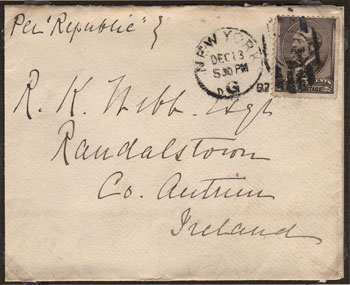 Per "Republic" &
NEW YORK
DEC 13
530PM
G
87
R. K. Webb Esqr
Randalstown
Co. Antrim
Ireland